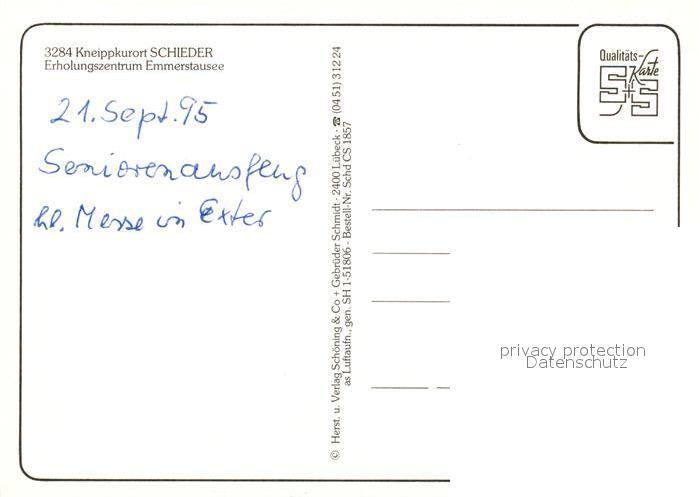 3284 Kneippkurort SCHIEDER
Erholungszentrum Emmerstausee
21. Sept. 95
Seniorenausflug
hl. Messe in Exter
© Herst. u. Verlag Schöning & Co + Gebrüder Schmidt · 2400 Lübeck · ☎ (04 51) 3 12 24
as Luftaufn., gen. SH 1-51806 - Bestell-Nr. Schd CS 1857
Qualitäts-
Karte
S+S
privacy protection
Datenschutz